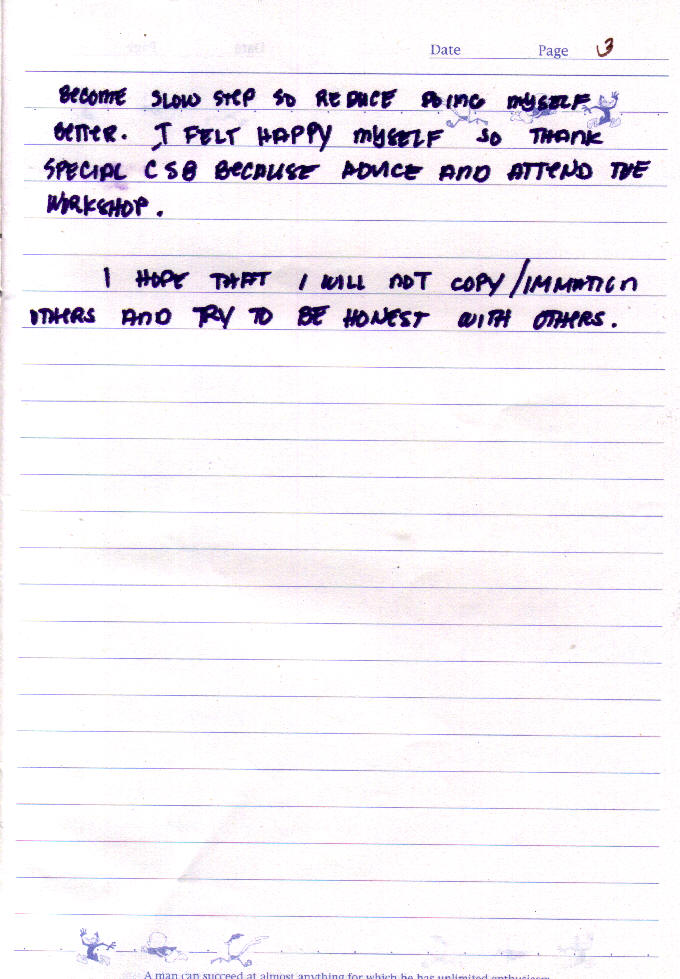 Date Page 3
BECOME SLOW STEP SO REDUCE DOING MYSELF
BETTER. I FELT HAPPY MYSELF SO THANK
SPECIAL CSB BECAUSE ADVICE AND ATTEND THE
WORKSHOP.
I HOPE THAT I WILL NOT COPY/IMMATIGN
OTHERS AND TRY TO BE HONEST WITH OTHERS.
A man can succeed at almost anything for which he has unlimited enthusiasm